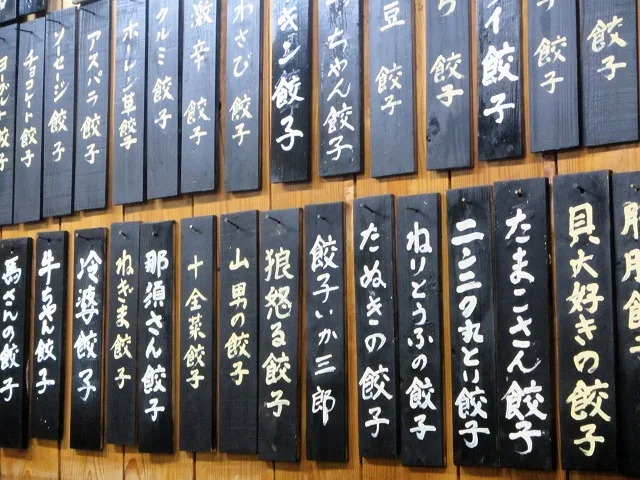 ヨーグルト餃子
チョコレート餃子
ソーセージ餃子
アスパラ餃子
ホーレン草餃子
クルミ餃子
激辛餃子
わさび餃子
キン餃子
ちゃん餃子
豆餃子
餃子
イ餃子
餃子
餃子
馬さんの餃子
牛ちゃん餃子
冷婆餃子
ねぎま餃子
那須さん餃子
十全菜餃子
山男の餃子
狼怒る餃子
餃子いか三郎
たぬきの餃子
ねりとうふの餃子
二〇三〇丸とり餃子
たまこさん餃子
貝大好きの餃子
餃子